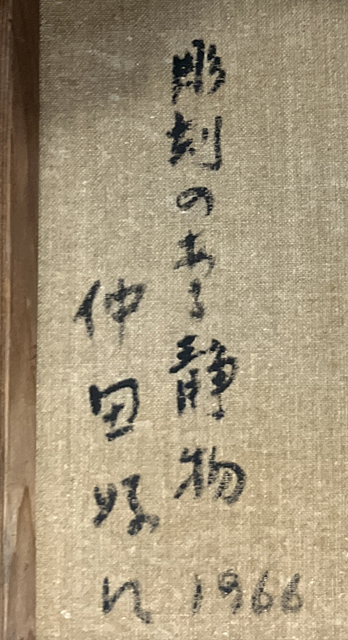 彫刻のある静物
1966
仲田好江